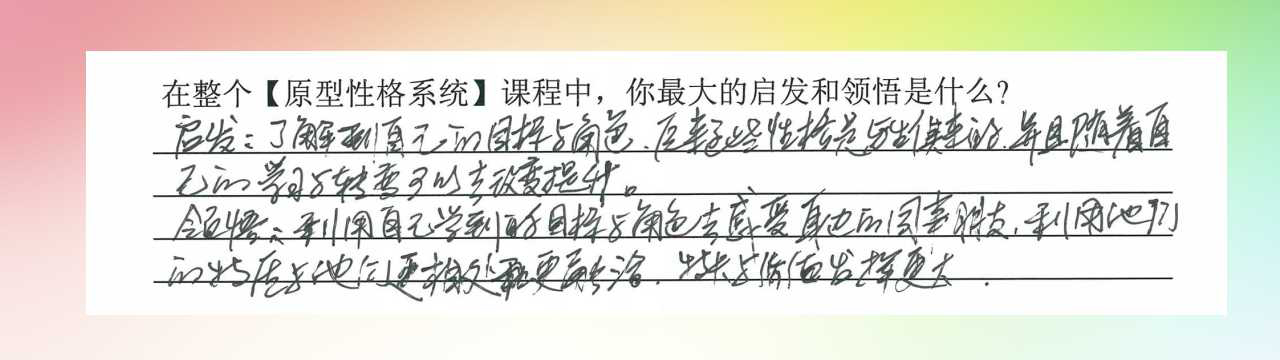 在整个【原型性格系统】课程中，你最大的启发和领悟是什么？
启发：了解到自己的目标与角色、原来这些性格是与生俱来的、并且随着自
己的学习与转变可以去改变提升。
领悟：利用自己学到的目标与角色去感受身边的同事朋友，利用他们
的特质与他们更相处融更融洽、特长与价值发挥更大．